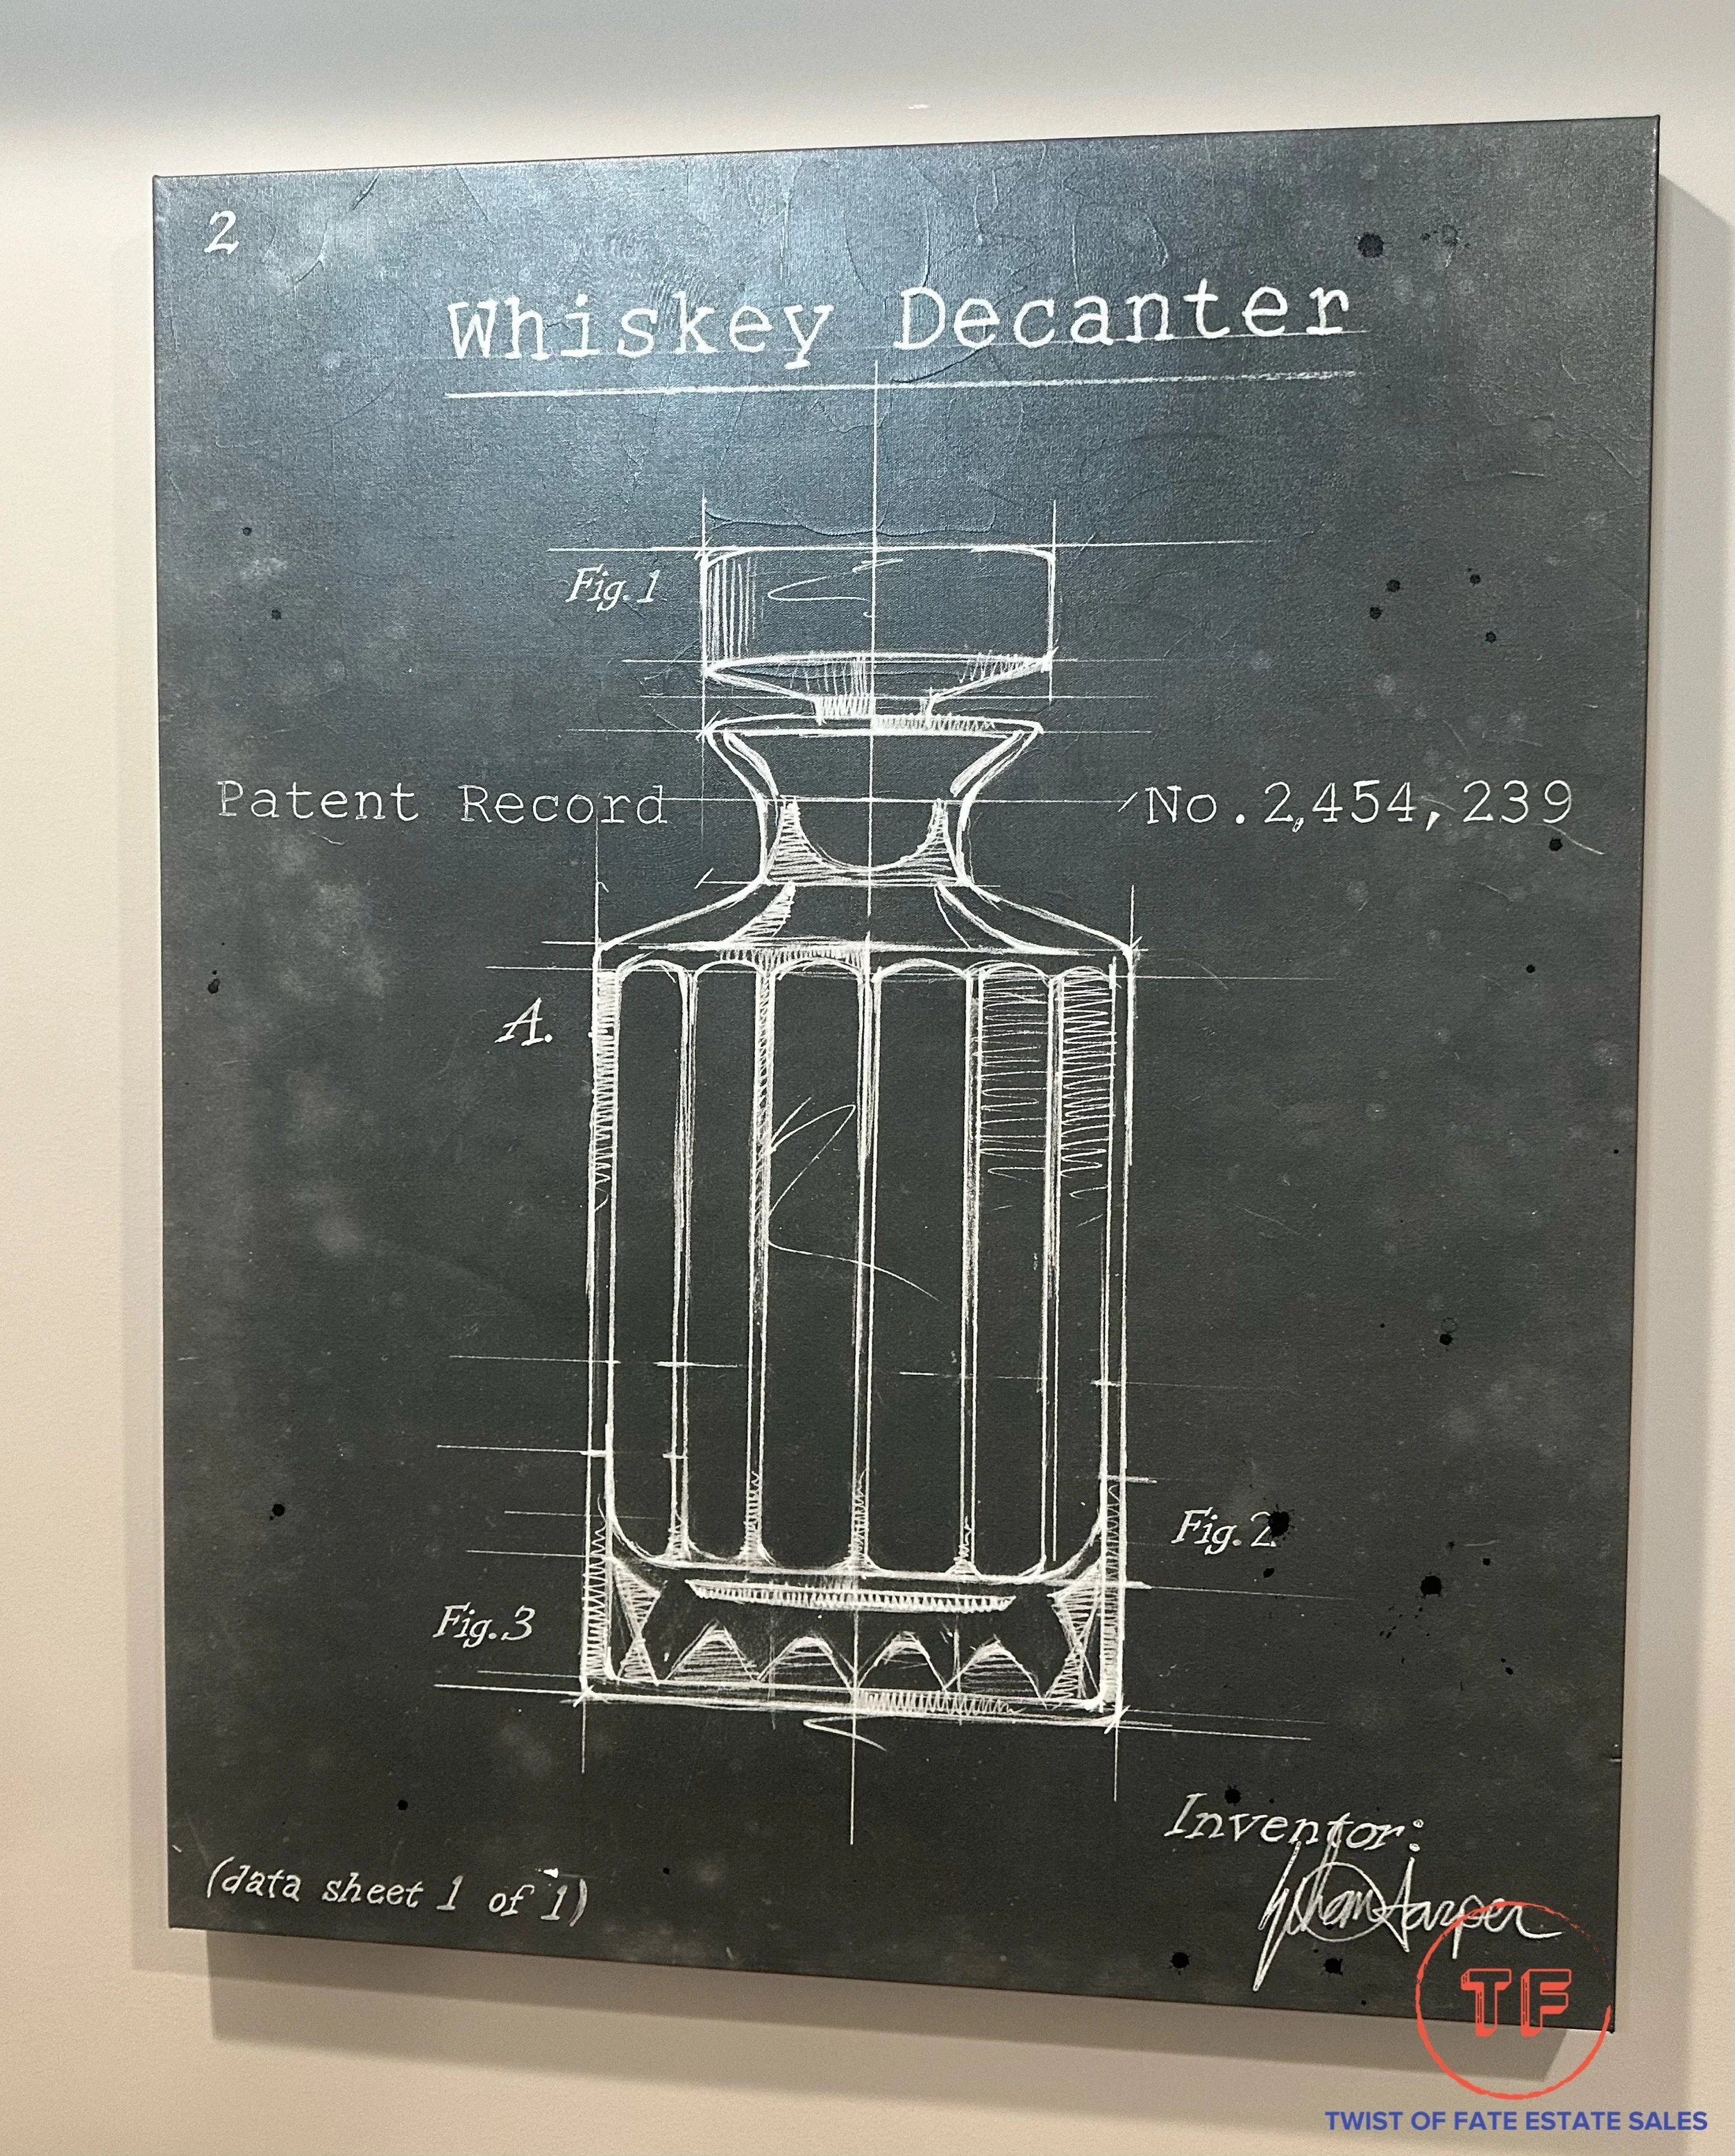 2
Whiskey Decanter
Fig.1
Patent Record No.2,454,239
A.
Fig.2
Fig.3
Inventor:
Harper
(data sheet 1 of 1)
TF
TWIST OF FATE ESTATE SALES